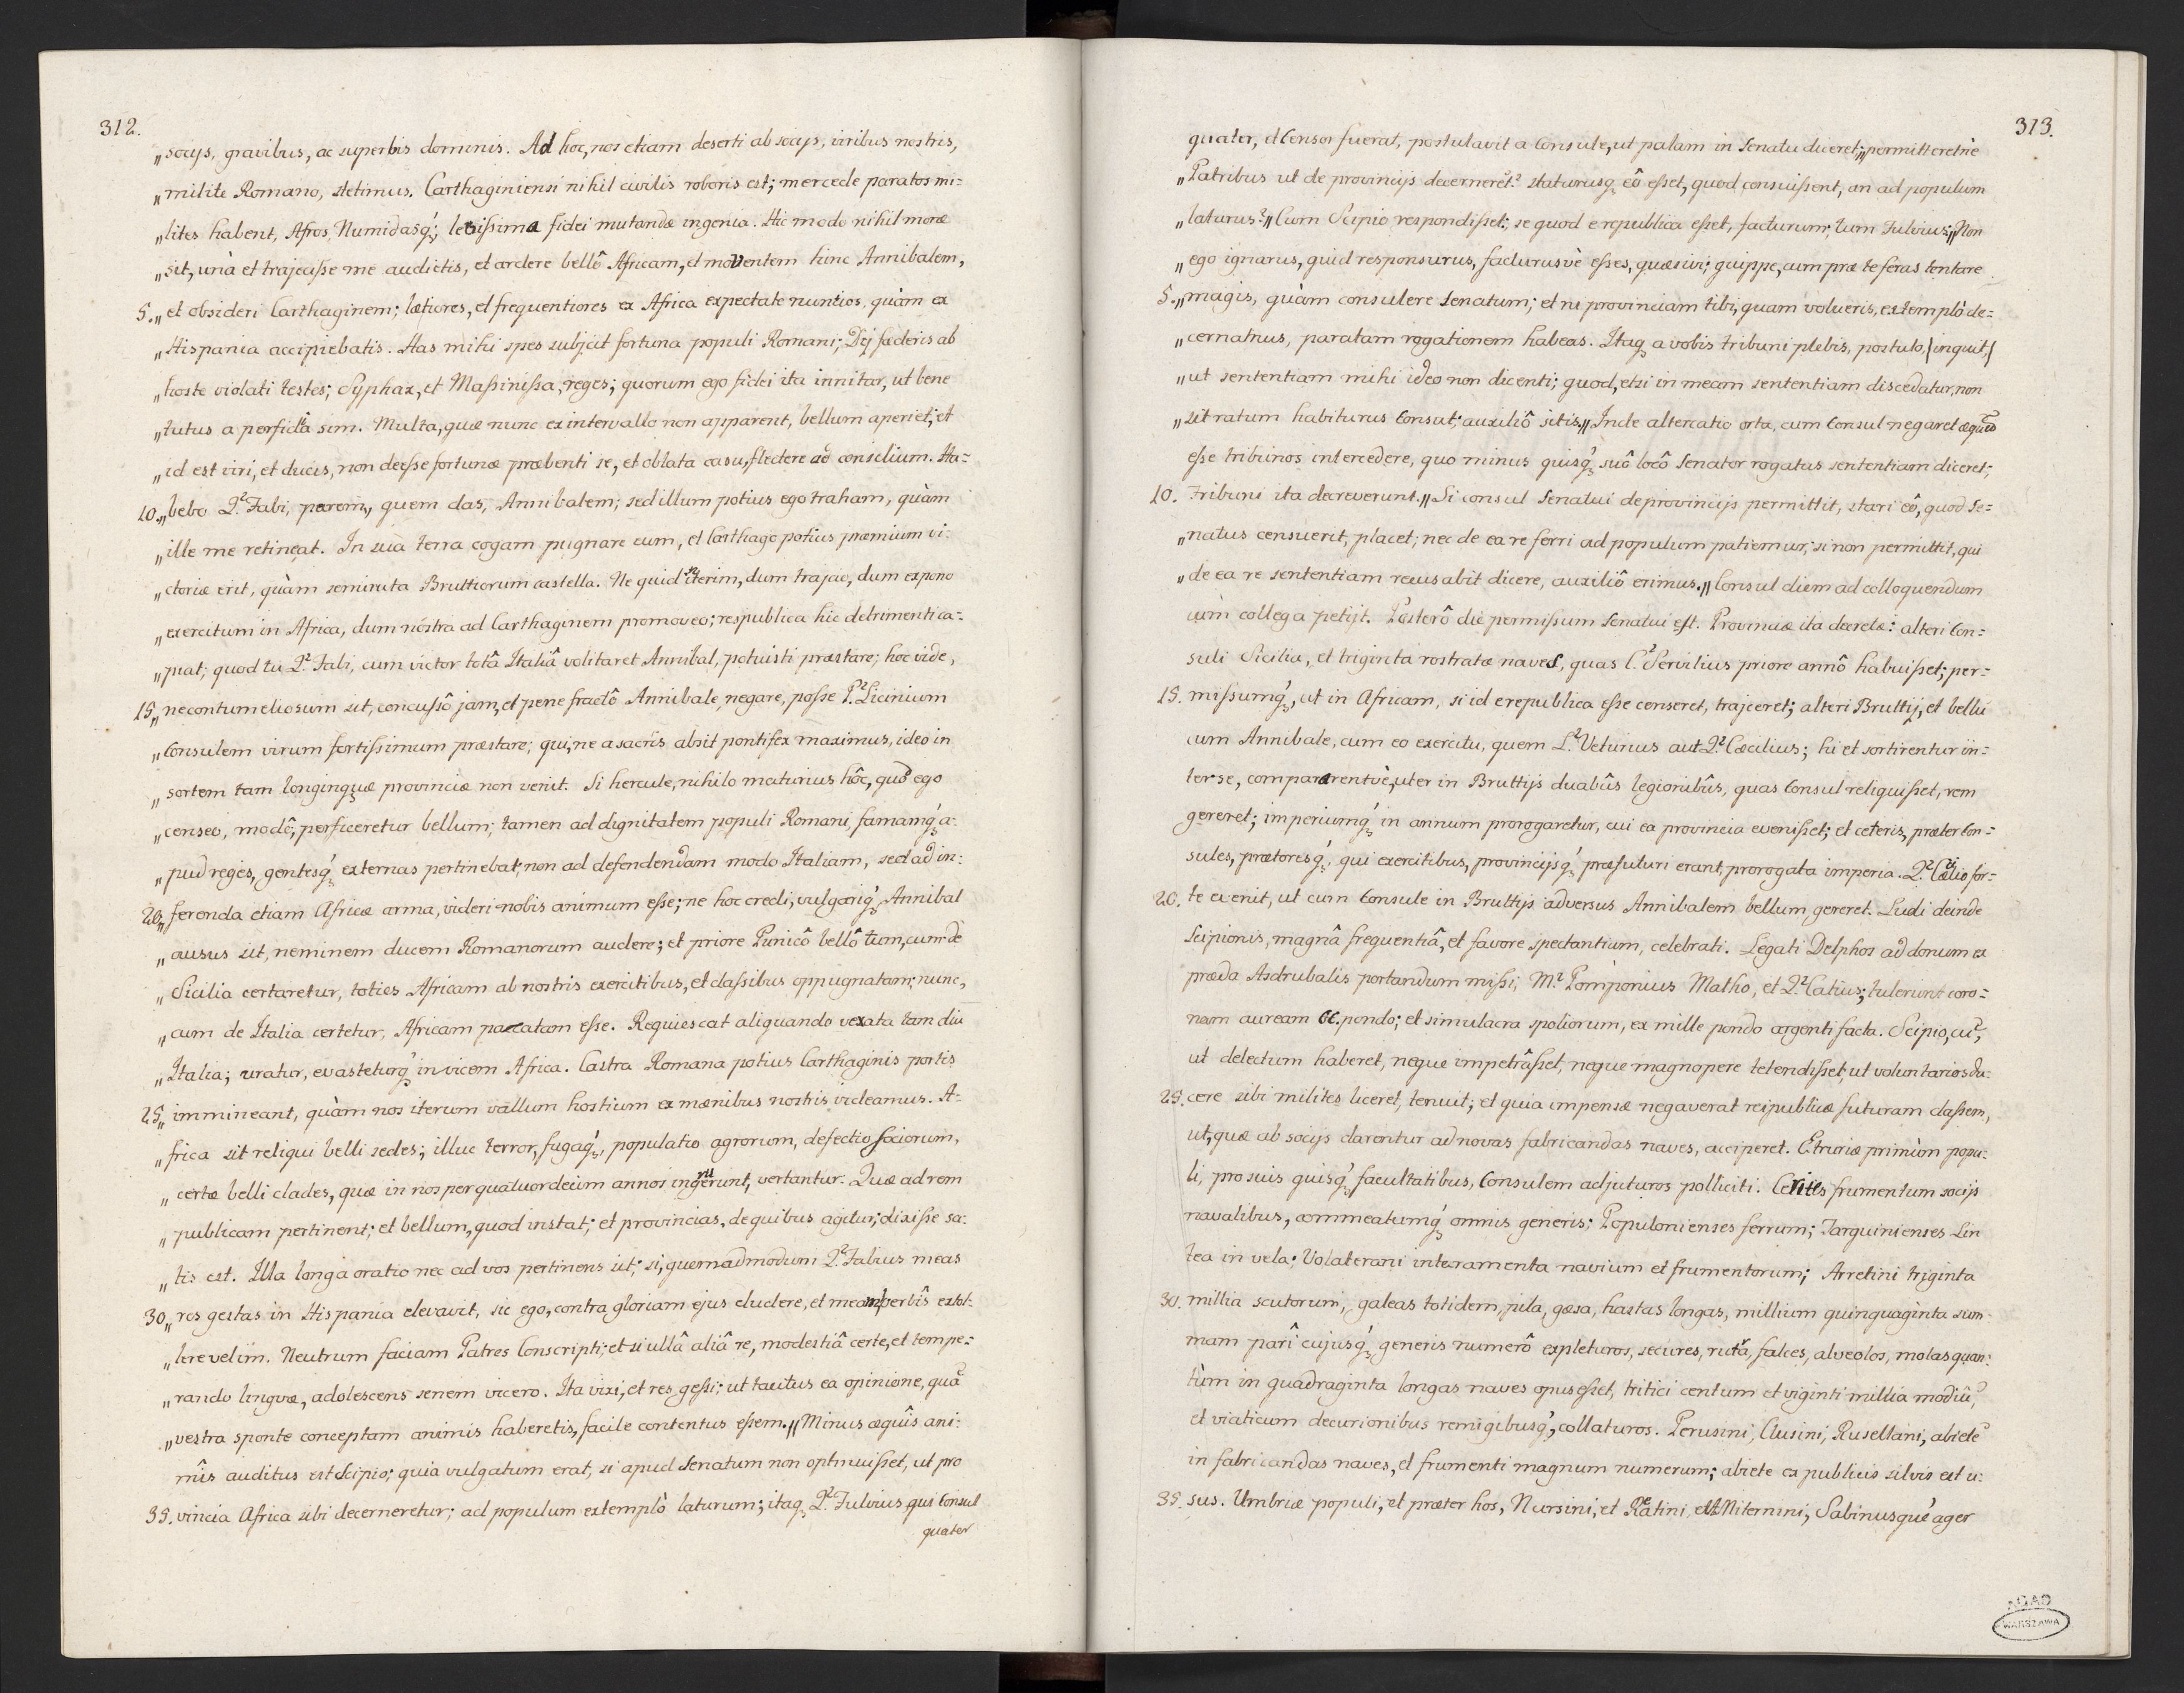 312.
„socijs, gravibus, ac superbis dominis. Ad hoc, nos etiam deserti ab socijs, viribus nostris,
„milite Romano, stetimus. Carthaginiensi nihil civilis roboris est; mercede paratos mi=
„lites habent, Afros, Numidasq́; levissima fidei mutandæ ingenia. Hic modo nihil moræ
„sit, unà et trajecisse me audietis, et ardere bellô Africam, et moventem hinc Annibalem,
5. „et obsideri Carthaginem; lætiores, et frequentiores ex Africa expectate nuntios, quàm ex
„Hispania accipiebatis. Has mihi spes subjcit fortuna populi Romani; Dij fœderis ab
„hoste violati testes; Syphax, et Massinissa, reges; quorum ego fidei ita innitar, ut bene
„tutus a perfidia sim. Multa, quæ nunc ex intervallo non apparent, bellum aperiet; et
„id est viri, et ducis, non deesse fortunæ præbenti se, et oblata casu, flectere ad consilium. Ha=
10. „bebo Q. Fabi, parem, quem das, Annibalem; sed illum potius ego traham, quàm
„ille me retineat. In suà terra cogam pugnare eum, et Carthago potius præmium vi=
„ctoriæ erit, quàm semiruta Bruttiorum castella. Ne quid interim, dum trajcio, dum expono
„exercitum in Africa, dum nostra ad Carthaginem promoveo; respublica hic detrimenti ca=
„piat; quod tu Q. Fabi, cum victor totâ Italiâ volitaret Annibal, potuisti præstare; hoc vide,
15. „ne contumeliosum sit, concussô jam, et pene fractô Annibale, negare, posse P. Licinium
„Consulem virum fortissimum præstare; qui, ne a sacris absit pontifex maximus, ideo in
„sortem tam longinquæ provinciæ non venit. Si hercule, nihilo maturius hôc, quo ego
„censeo, modô, perficeretur bellum; tamen ad dignitatem populi Romani, famamq́ a=
„pud reges, gentesq́ externas pertinebat, non ad defendendam modo Italiam, sed ad in=
20. „ferenda etiam Africæ arma, videri nobis animum esse; ne hoc credi, vulgariq́ Annibal
„ausus sit, neminem ducem Romanorum audere; et priore Punicô bellô tum, cum de
„Sicilia certaretur, toties Africam ab nostris exercitibus, et classibus oppugnatam; nunc,
„cum de Italia certetur, Africam pacatam esse. Requiescat aliquando vexata tam diu
„Italia; uratur, evasteturq́ in vicem Africa. Castra Romana potius Carthaginis portis
25. „immineant, quàm nos iterum vallum hostium ex mœnibus nostris videamus. A=
„frica sit reliqui belli sedes; illuc terror, fugaq́, populatio agrorum, defectio sociorum,
„certæ belli clades, quæ in nos per quatuordecim annos ingruerunt, vertantur. Quæ ad rem
„publicam pertinent; et bellum, quod instat; et provincias, de quibus agitur; dixisse sa=
„tis est. Illa longa oratio nec ad vos pertinens sit; si, quemadmodum Q. Fabius meas
30. „res gestas in Hispania elevavit, sic ego, contra gloriam ejus eludere, et meam verbîs extol=
„lere velim. Neutrum faciam Patres Conscripti; et si ullâ aliâ re, modestiâ certe, et tempe=
„rando linguæ, adolescens senem vicero. Ita vixi, et res gessi; ut tacitus ea opinione, quā
„vestra sponte conceptam animis haberetis, facile contentus essem.„ Minus æquîs ani=
mîs auditus est Scipio; quia vulgatum erat, si apud Senatum non optinuisset, ut pro
35. vincia Africa sibi decerneretur; ad populum extemplò laturum; itaq Q. Fulvius, qui Consul
quater
313.
quater, et Censor fuerat, postulavit a Consule, ut palam in Senatu diceret; „permitteretnè
„Patribus ut de provincijs decerneret? staturusq eô esset, quod censuissent, an ad populum
„laturus?„ Cum Scipio respondisset; se quod e republica esset, facturum; tum Fulvius; „Non
„ego ignarus, quid responsurus, facturusvè esses, quæsivi; quippe, cum præ te feras tentare
5. „magis, quàm consulere Senatum; et ni provinciam tibi, quam volueris, extemplò de=
„cernamus, paratam rogationem habeas. Itaq a vobis tribuni plebis, postulo, (inquit,)
„ut sententiam mihi ideo non dicenti; quod, etsi in meam sententiam discedatur, non
„sit ratum habiturus Consul; auxiliô sitis.„ Inde altercatio orta, cum Consul negaret æquū
esse tribunos intercedere, quo minus quisq́ suô locô Senator rogatus sententiam diceret;
10. Tribuni ita decreverunt. „Si consul Senatui de provincijs permittit, stari eô, quod Se=
„natus censuerit, placet; nec de ea re ferri ad populum patiemur; si non permittit, qui
„de ea re sententiam recusabit dicere, auxiliô erimus.„ Consul diem ad colloquendum
cum collega petijt. Posterô die permissum Senatui est. Provinciæ ita decretæ: alteri Con=
suli Sicilia, et triginta rostratæ naves, quas C. Servilius priore annô habuisset; per=
15. missumq́, ut in Africam, si id e republica esse censeret, trajceret; alteri Bruttij, et belli
cum Annibale, cum eo exercitu, quem L. Veturius aut Q. Cæcilius; hi et sortirentur in=
ter se, compararentvè, uter in Bruttijs duabûs legionibûs, quas Consul reliquisset, rem
gereret; imperiumq́ in annum prorogaretur, cui ea provincia evenisset; et ceteris, præter Con=
sules, prætoresq́, qui exercitibus, provincijsq́ præfuturi erant, prorogata imperia. Q. Cæcilio for=
20. te evenit, ut cum Consule in Bruttijs adversus Annibalem bellum gereret. Ludi deinde
Scipionis, magnâ frequentiâ, et favore spectantium, celebrati. Legati Delphos ad donum ex
præda Asdrubalis portandum missi, M. Pomponius Matho, et Q. Catius; tulerunt coro=
nam auream CC. pondo; et simulacra spoliorum, ex mille pondo argenti facta. Scipio, cū,
ut delectum haberet, neque impetrâsset, neque magnopere tetendisset, ut voluntarios du=
25. cere sibi milites liceret, tenuit; et quia impensæ negaverat reipublicæ futuram classem,
ut, quæ ab socijs darentur ad novas fabricandas naves, acciperet. Etruriæ primùm popu=
li, pro suis quisq́ facultatibus, Consulem adjuturos polliciti. Cerites frumentum socijs
navalibus, commeatumq́ omnis generis; Populonienses ferrum; Tarquinienses Lin
tea in vela; Volaterani interamenta navium et frumentorum; Arretini triginta
30. millia scutorum, galeas totidem, pila, gæsa, hastas longas, millium quinquaginta sum=
mam parî cujusq́ generis numerô expleturos, secures, rutra, falces, alveolos, molas quan=
tùm in quadraginta longas naves opus esset, tritici centum et viginti millia modiū,
et viaticum decurionibus remigibusq́, collaturos. Perusini, Clusini, Rusellani, abietē
in fabricandas naves, et frumenti magnum numerum; abiete ex publicis silvis est u=
35. sus. Umbriæ populi, et præter hos, Nursini, et Reatini, et Amiternini, Sabinusquè ager
AGAD
WARSZAWA